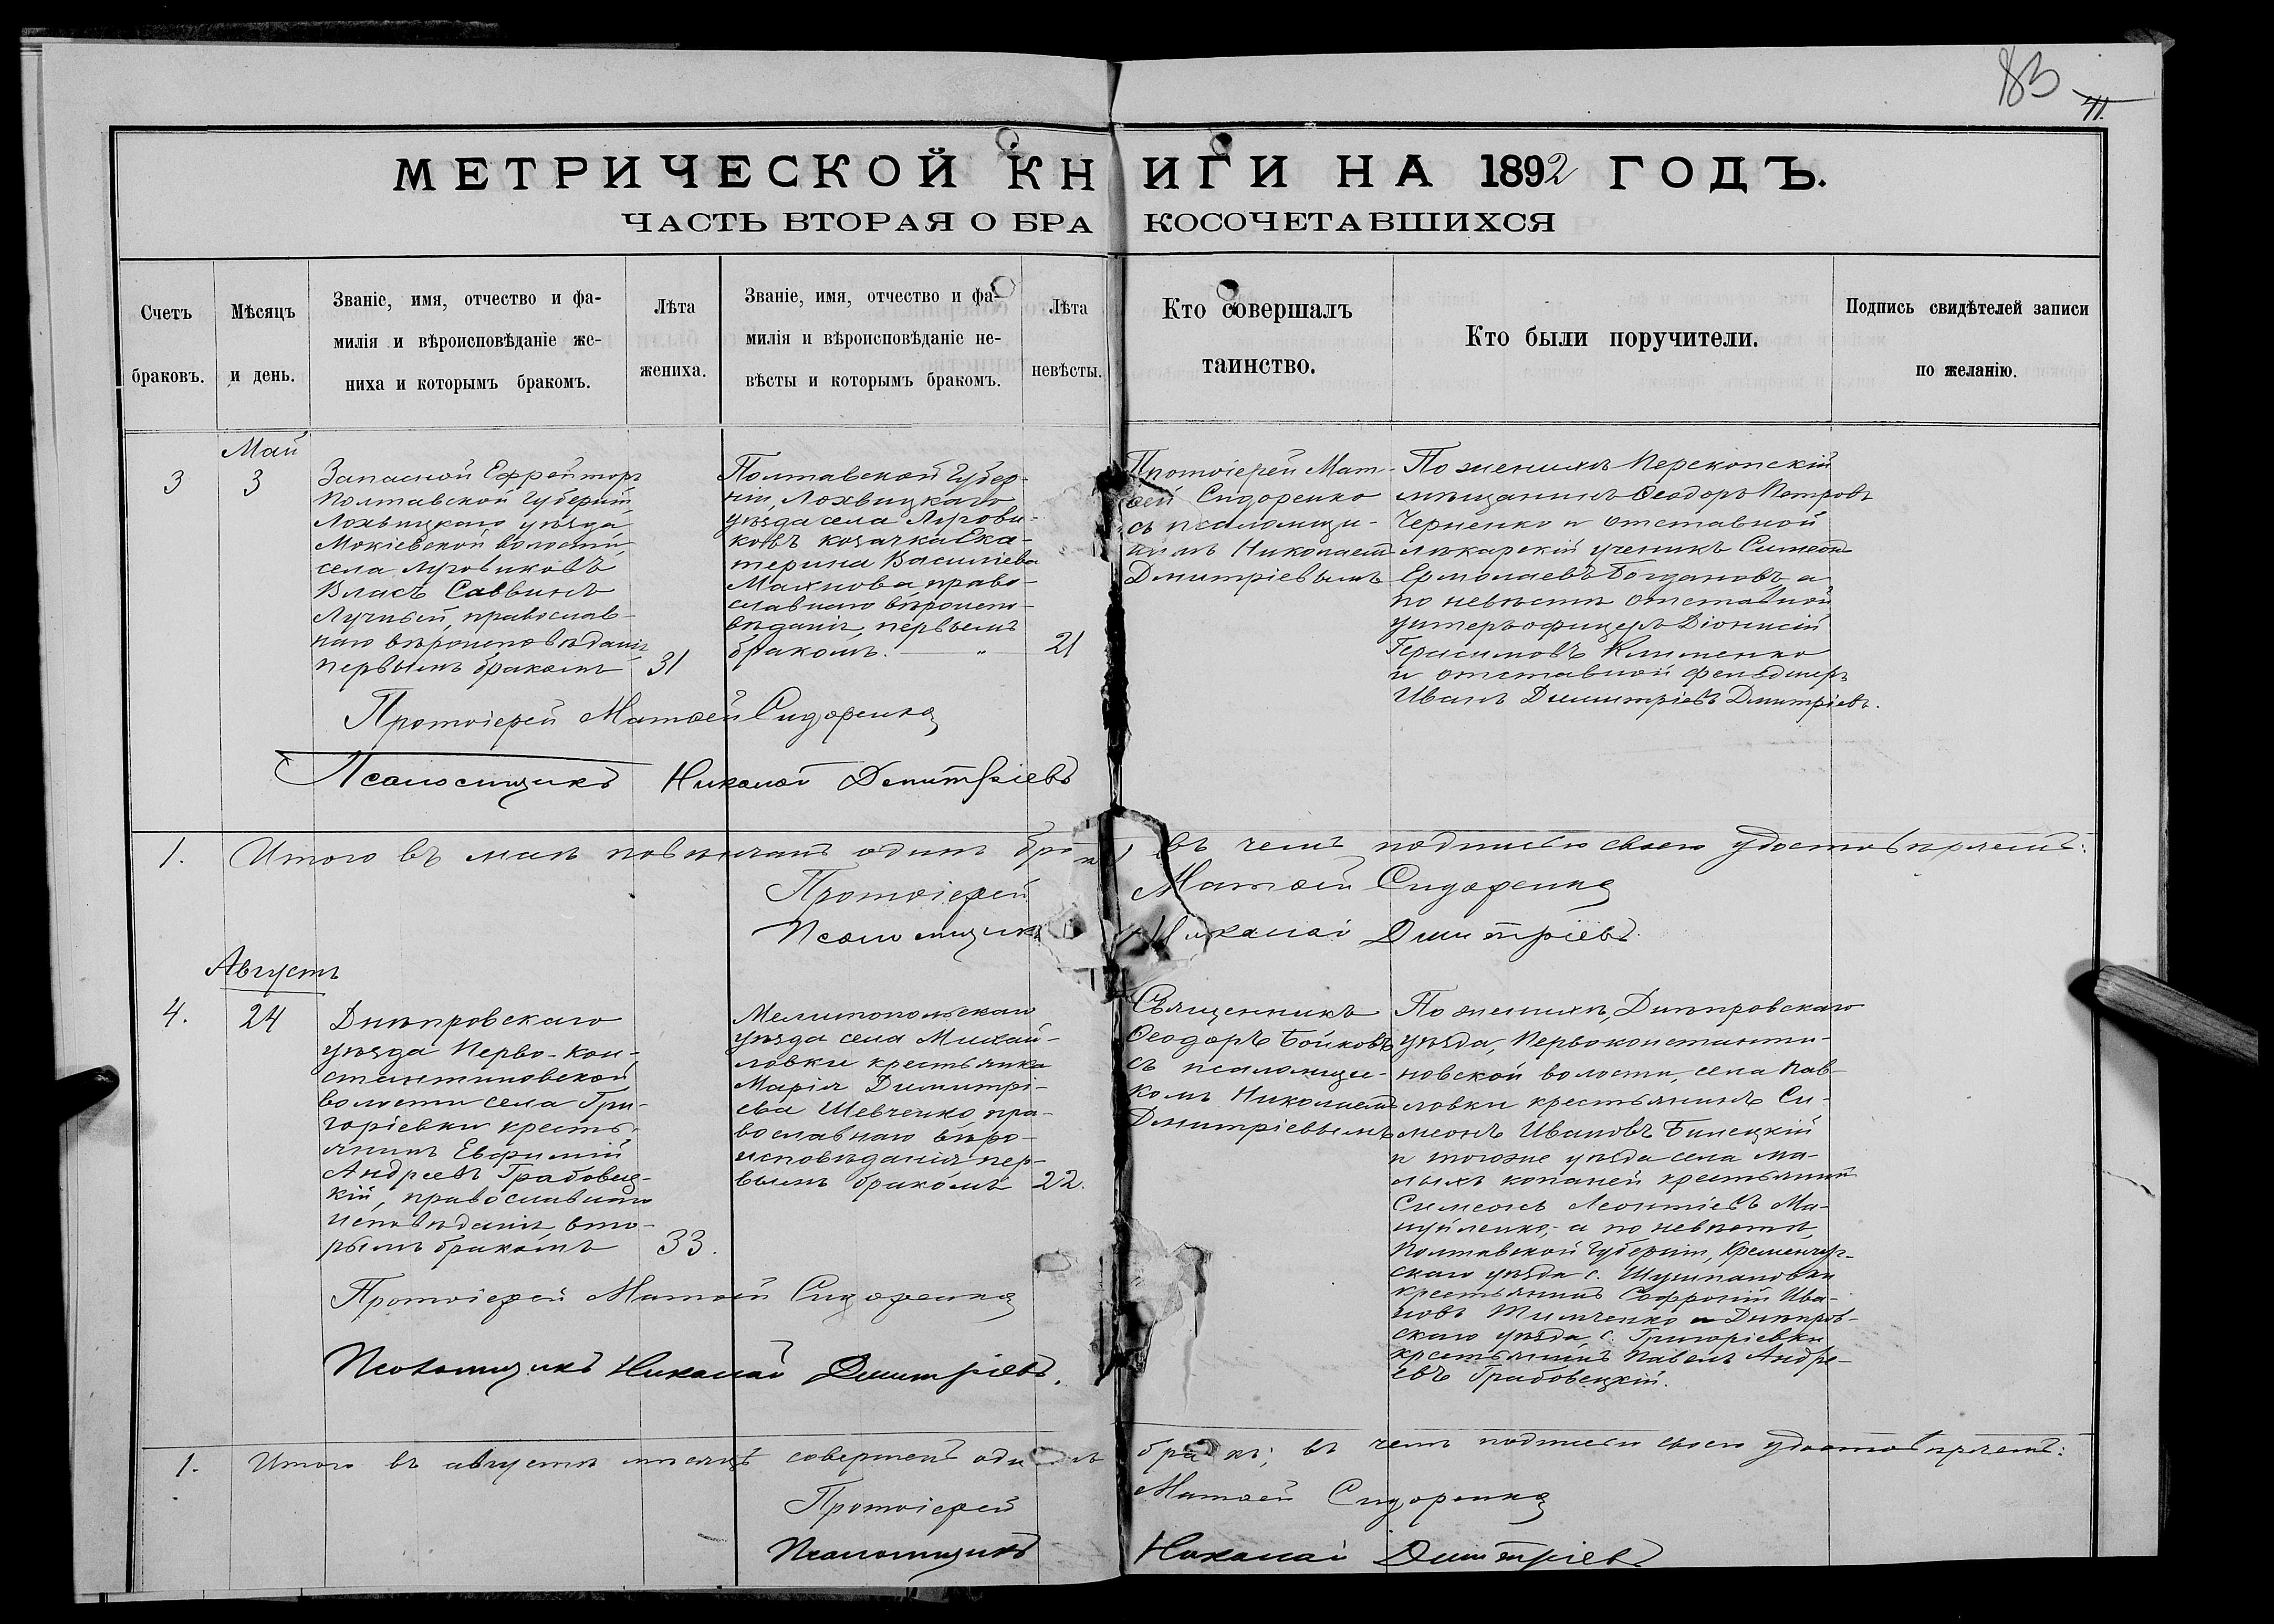 83
41.
МЕТРИЧЕСКОЙ КНИГИ НА 1892 ГОДЪ.
ЧАСТЬ ВТОРАЯ О БРАКОСОЧЕТАВШИХСЯ
Счетъ
браковъ.
Мѣсяцъ
и день.
Званіе, имя, отчество и фа-
милія и вѣроисповѣданіе же-
ниха и которымъ бракомъ.
Лѣта
жениха.
Званіе, имя, отчество и фа-
милія и вѣроисповѣданіе не-
вѣсты и которымъ бракомъ.
Лѣта
невѣсты.
Кто совершалъ
таинство.
Кто были поручители.
Подпись свидѣтелей записи
по желанію.
3
Май
3
Запасной Ефрейторъ
Полтавской Губерніи,
Лохвицкаго уѣзда
Мокіевской волости,
села Луговиковъ
Власъ Саввинъ
Лучный, православ-
наго вѣроисповѣданія
первымъ бракомъ
31
Полтавской Губер-
ніи, Лохвицкаго
уѣзда села Лугови-
ковъ козачка Ека-
терина Василіева
Махнова, право-
славнаго вѣроиспо-
вѣданія, первымъ
бракомъ. — „ —
21
Протоіерей Мат-
ѳей Сидоренко
съ псаломщи-
комъ Николаемъ
Дмитріевымъ
По женихѣ Перекопскій
мѣщанинъ Ѳеодоръ Петровъ
Черненко и отставной
лѣкарскій ученикъ Симеонъ
Ермолаевъ Богдановъ, а
по невѣстѣ отставной
унтеръ-офицеръ Діонисій
Герасимовъ Клименко
и отставной фельдшеръ
Иванъ Димитріевъ Дмитріевъ.
Протоіерей Матѳей Сидоренко
Псаломщикъ Николай Дмитріевъ
1. Итого въ маѣ повѣнчанъ одинъ бракъ, въ чемъ подписью своею удостовѣряемъ:
Протоіерей Матѳей Сидоренко
Псаломщикъ Николай Дмитріевъ.
Августъ
4.
24
Днѣпровскаго
уѣзда Перво-Кон-
стантиновской
волости села Гри-
горіевки кресть-
янинъ Евфимій
Андреевъ Грабовец-
кій, православнаго
исповѣданія, вто-
рымъ бракомъ
33.
Мелитопольскаго
уѣзда села Михай-
ловки крестьянка
Марія Димитрі-
ева Шевченко, пра-
вославнаго вѣро-
исповѣданія, пер-
вымъ бракомъ
22.
Священникъ
Ѳеодоръ Бойковъ
съ псаломщи-
комъ Николаемъ
Дмитріевымъ
По женихѣ, Днѣпровскаго
уѣзда, Первоконстанти-
новской волости, села Пав-
ловки крестьянинъ Си-
меонъ Ивановъ Билецкій
и тогоже уѣзда села Ма-
лыхъ Копаней крестьянинъ
Симеонъ Леонтіевъ Ма-
нуйленко, а по невѣстѣ,
Полтавской Губерніи, Кременчуг-
скаго уѣзда с.
крестьянинъ Софроній Ива-
новъ Тимченко и Днѣпров-
скаго уѣзда, с. Григоріевки
крестьянинъ Павелъ Андре-
евъ Грабовецкій.
Протоіерей Матѳей Сидоренко
Псаломщикъ Николай Дмитріевъ.
1. Итого въ августѣ мѣсяцѣ совершенъ одинъ бракъ; въ чемъ подписью своею удостовѣряемъ:
Протоіерей Матѳей Сидоренко
Псаломщикъ Николай Дмитріевъ